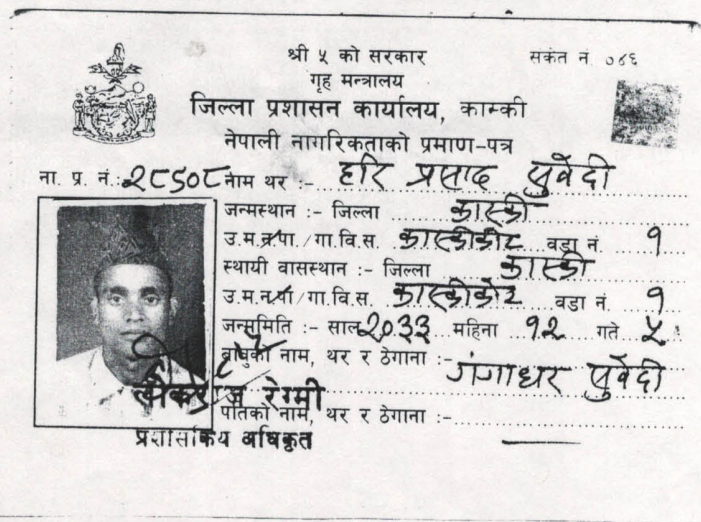 श्री ५ को सरकार
सकेत नं. ०४६
गृह मन्त्रालय
जिल्ला प्रशासन कार्यालय, कास्की
नेपाली नागरिकताको प्रमाण-पत्र
ना. प्र. नं.: २८५०८ नाम थर :- हरि प्रसाद सुवेदी
जन्मस्थान :- जिल्ला कास्की
उ.म.न.पा./गा.वि.स. कास्कीकोट वडा नं. १
स्थायी वासस्थान :- जिल्ला कास्की
उ.म.न.पा/गा.वि.स. कास्कीकोट वडा नं. १
जन्ममिति :- साल २०३३ महिना १२ गते ५
बाबुको नाम, थर र ठेगाना :- गंगाधर सुवेदी
रेग्मी
पतिको नाम, थर र ठेगाना :-
प्रशासकिय अधिकृत